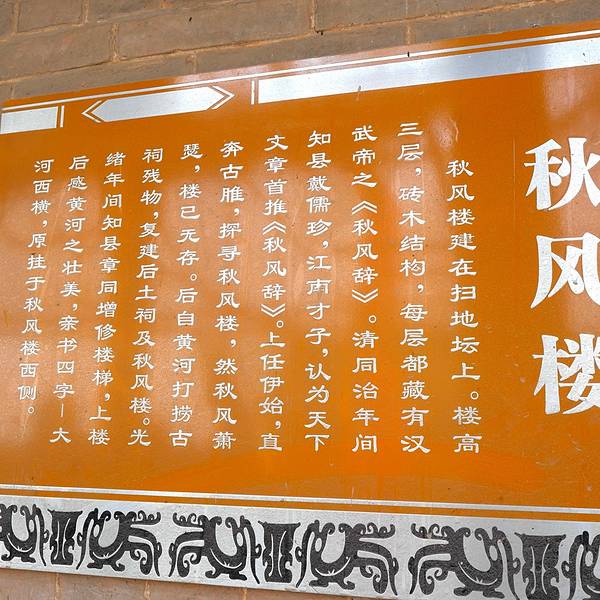 秋风楼
秋风楼建在扫地坛上。楼高
三层，砖木结构，每层都藏有汉
武帝之《秋风辞》。清同治年间
知县戴儒珍，江南才子，认为天下
文章首推《秋风辞》。上任伊始，直
奔古脽，探寻秋风楼，然秋风萧
瑟，楼已无存。后自黄河打捞古
祠残物，复建后土祠及秋风楼。光
绪年间知县章同增修楼梯，上楼
后感黄河之壮美，亲书四字—大
河西横，原挂于秋风楼西侧。